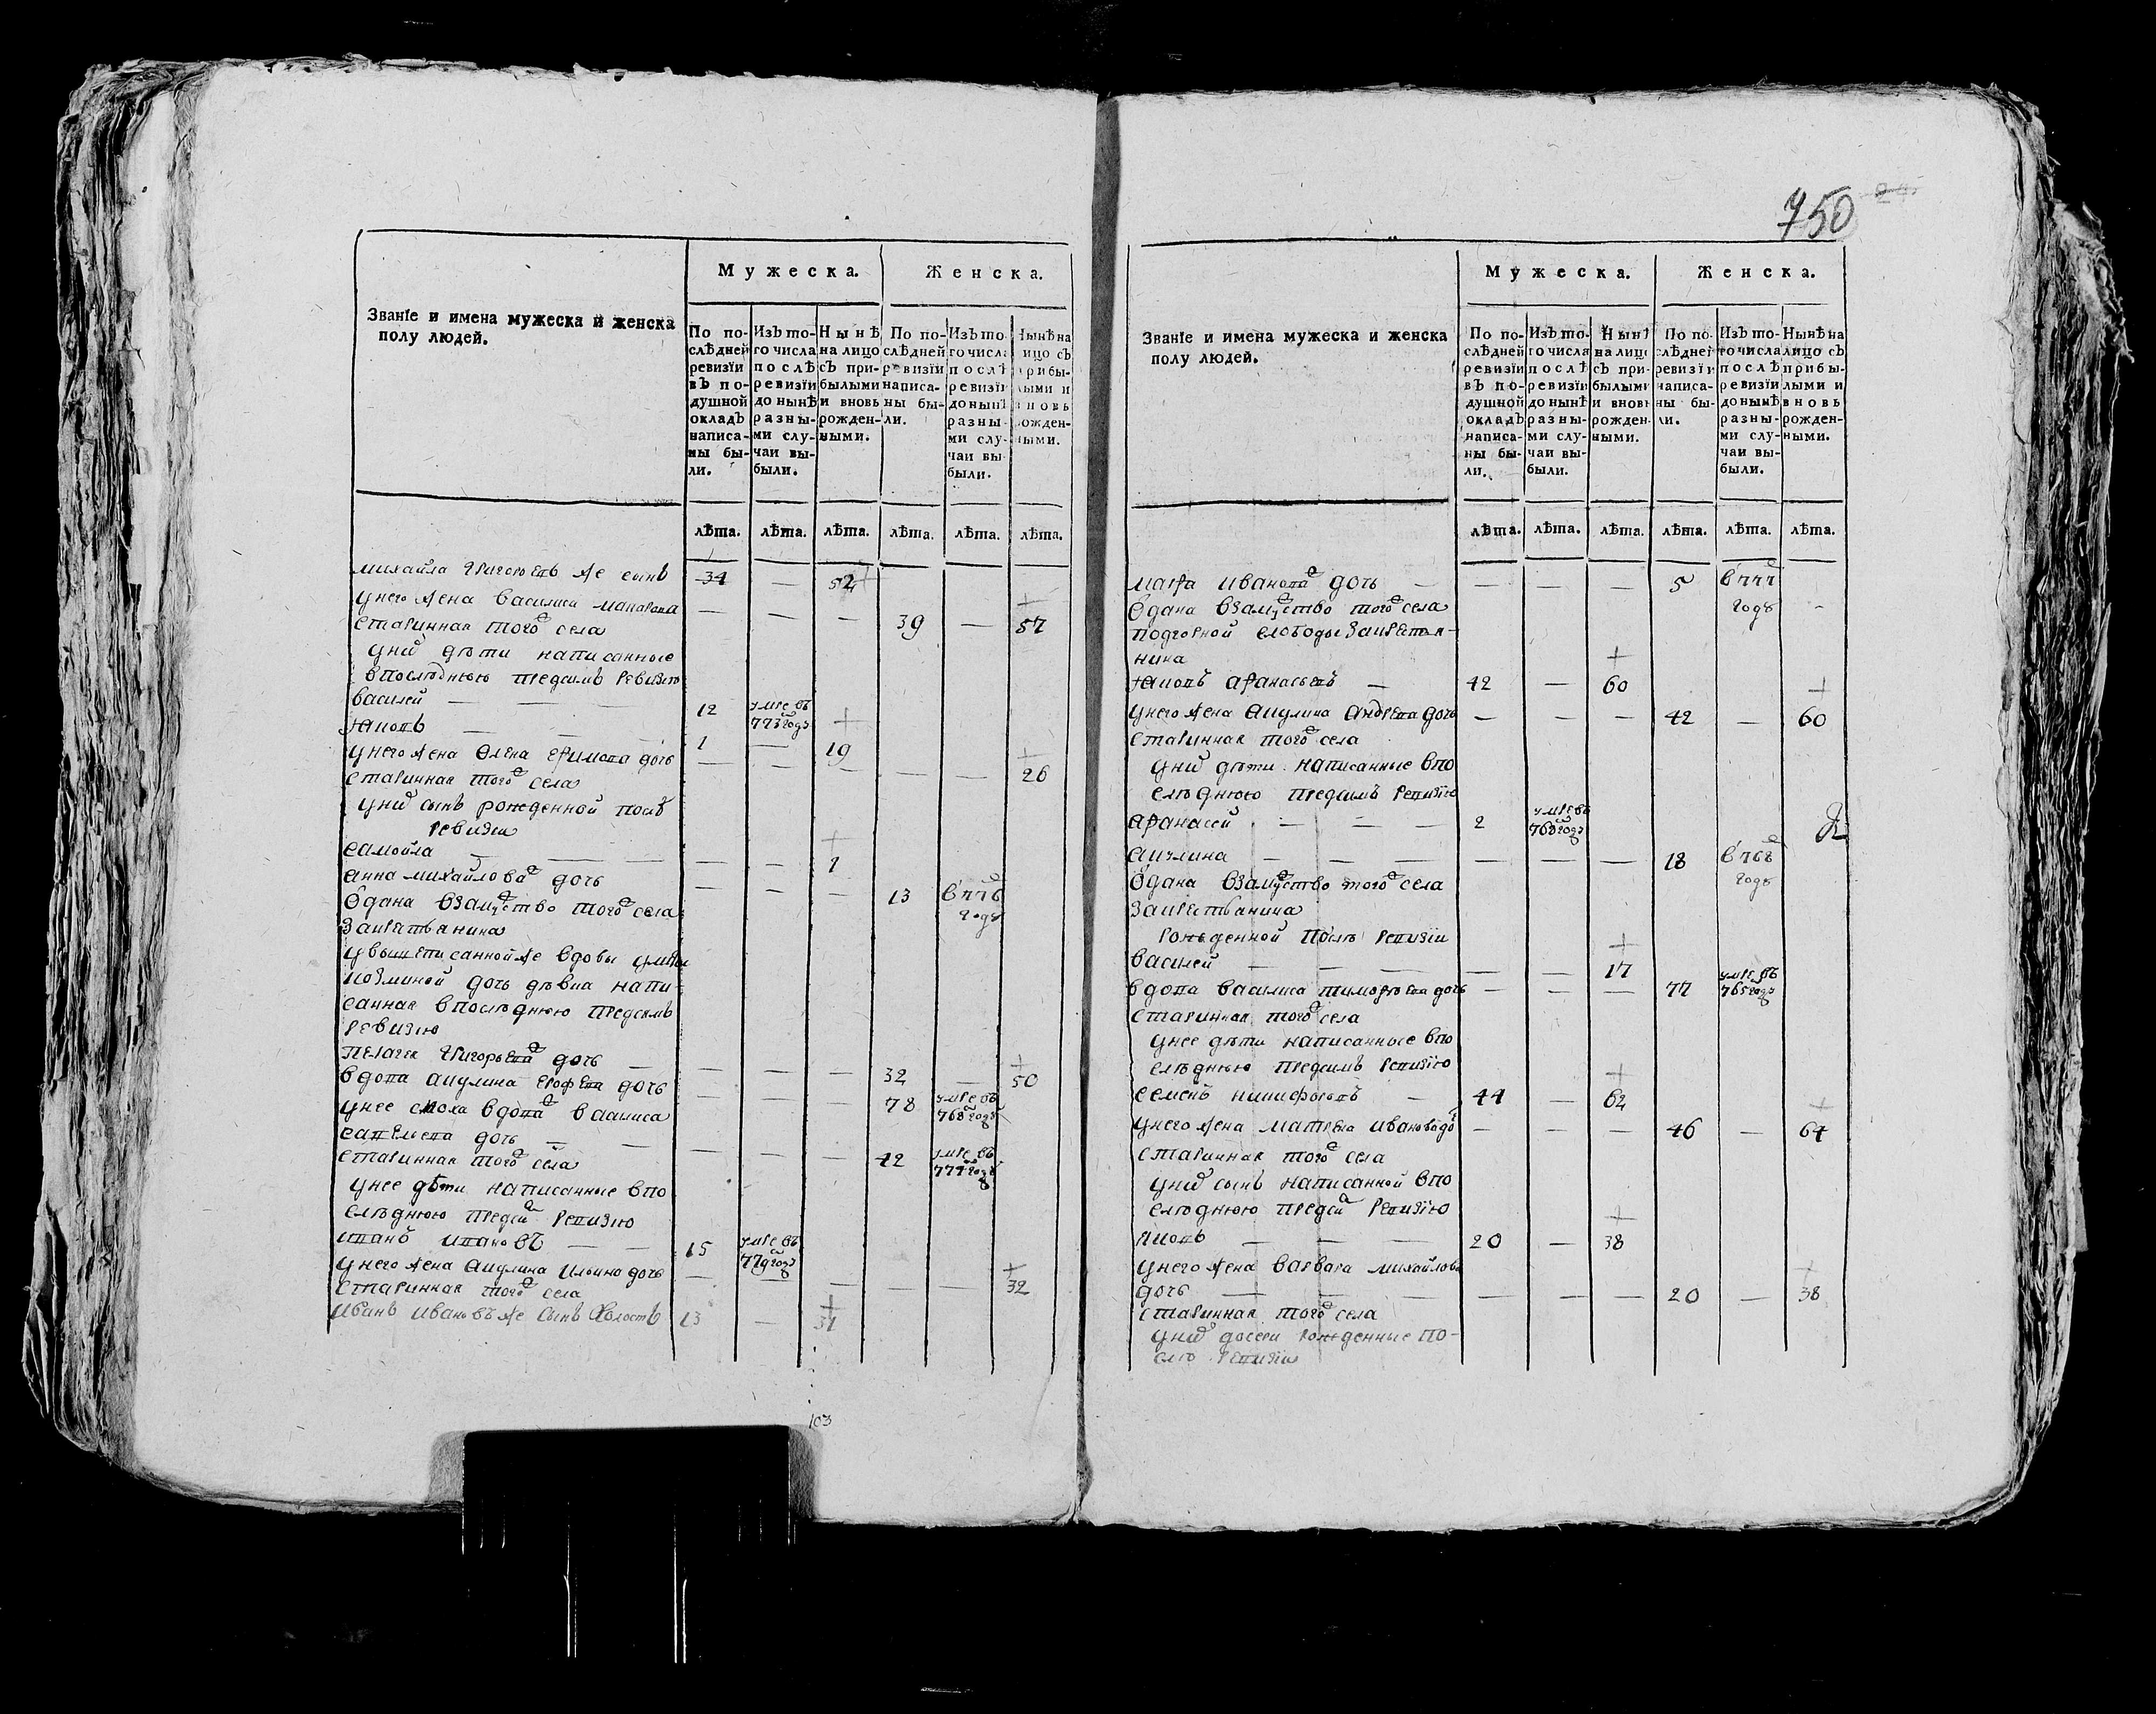 750
Мужеска.
Женска.
Званїе и имена мужеска и женска
полу людей.
По по-
слѣдней
ревизїи
въ по-
душной
окладъ
написа-
ны бы-
ли.
Изъ то-
го числа
послѣ
ревизїи
до нынѣ
разны-
ми слу-
чаи вы-
были.
Нынѣ
на лицо
съ при-
былыми
и вновь
рожден-
ными.
По по-
слѣдней
ревизїи
написа-
ны бы-
ли.
Изъ то-
го числа
послѣ
ревизїи
до нынѣ
разны-
ми слу-
чаи вы-
были.
Нынѣ на
лицо съ
прибы-
лыми и
вновь
рожден-
ными.
лѣта. лѣта. лѣта. лѣта. лѣта. лѣта.
михайла григорьевъ же сынъ 34 — 52
у него жена василиса макарова — — — 39 — 57
старинная того села
у нихъ дѣти написанные
в последнюю предсимъ ревизию
василей — — — 12 умре въ 773 году
яковъ — — — 1 — 19
у него жена олена ефимова дочь — — — — — 26
старинная того села
у нихъ сынъ рожденной послѣ
ревизии
самойла — — — — — 1
анна михайлова дочь — — — 13 в 776 году
одана взамуство того села
за крестьянина
у вышеписанной же вдовы ульяны
козминой дочь дѣвка напи-
санная в последнюю предсимъ
ревизию
пелагея григорьева дочь — — — — 32 — 50
вдова акулина ерофеева дочь — — — 78 умре въ 768 году
у нее сноха вдова василиса
савельева дочь — — — — — 42 умре въ 774 году
старинная того села
у нее дѣти написанные в по
следнюю предсим ревизию
иванъ ивановъ — — 15 умре въ 779 году
у него жена акулина ильина дочь — — — — — 32
старинная того села
иванъ ивановъ же сынъ холостъ 13 — 31
103
Мужеска.
Женска.
Званїе и имена мужеска и женска
полу людей.
По по-
слѣдней
ревизїи
въ по-
душной
окладъ
написа-
ны бы-
ли.
Изъ то-
го числа
послѣ
ревизїи
до нынѣ
разны-
ми слу-
чаи вы-
были.
Нынѣ
на лицо
съ при-
былыми
и вновь
рожден-
ными.
По по-
слѣдней
ревизїи
написа-
ны бы-
ли.
Изъ то-
го числа
послѣ
ревизїи
до нынѣ
разны-
ми слу-
чаи вы-
были.
Нынѣ на
лицо съ
прибы-
лыми и
вновь
рожден-
ными.
лѣта. лѣта. лѣта. лѣта. лѣта. лѣта.
марфа иванова дочь — — — — 5 в 777 году
одана взамуство того села
подгорной слободы за крестья-
нина
яковъ афанасьевъ — 42 — 60
у него жена акулина андреева дочь — — — 42 — 60
старинная того села
у нихъ дѣти написанные в по
следнюю предсимъ ревизїю
афанасей — — — 2 умре въ 763 году
акулина — — — — — — 18 в 768 году
одана взамуство того села
за крестьянина
рожденной послѣ ревизїи
василей — — — — — 17
вдова василиса тимофеева дочь — — — 77 умре въ 765 году
старинная того села
у нее дѣти написанные в по
следнюю предсимъ ревизїю
семенъ никифоровъ — 44 — 62
у него жена матрена иванова до — — — 46 — 64
старинная того села
у нихъ сынъ написанной в по
следнюю предсим ревизїю
яковъ — — — 20 — 38
у него жена варвара михайлова
дочь — — — — — — 20 — 38
старинная того села
у нихъ дочери рожденные по-
сле ревизїи